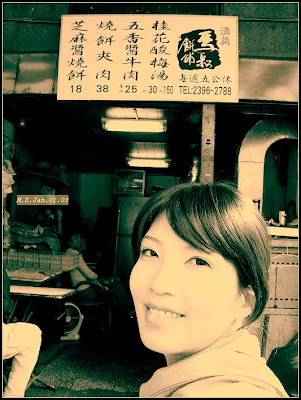 清真
馬叔
餅舖
每週五公休
TEL:2396-2788
桂花酸梅湯
小30 大150
五香醬牛肉
1兩25
燒餅夾肉
38
芝麻醬燒餅
18
M.K.Jan.02.09